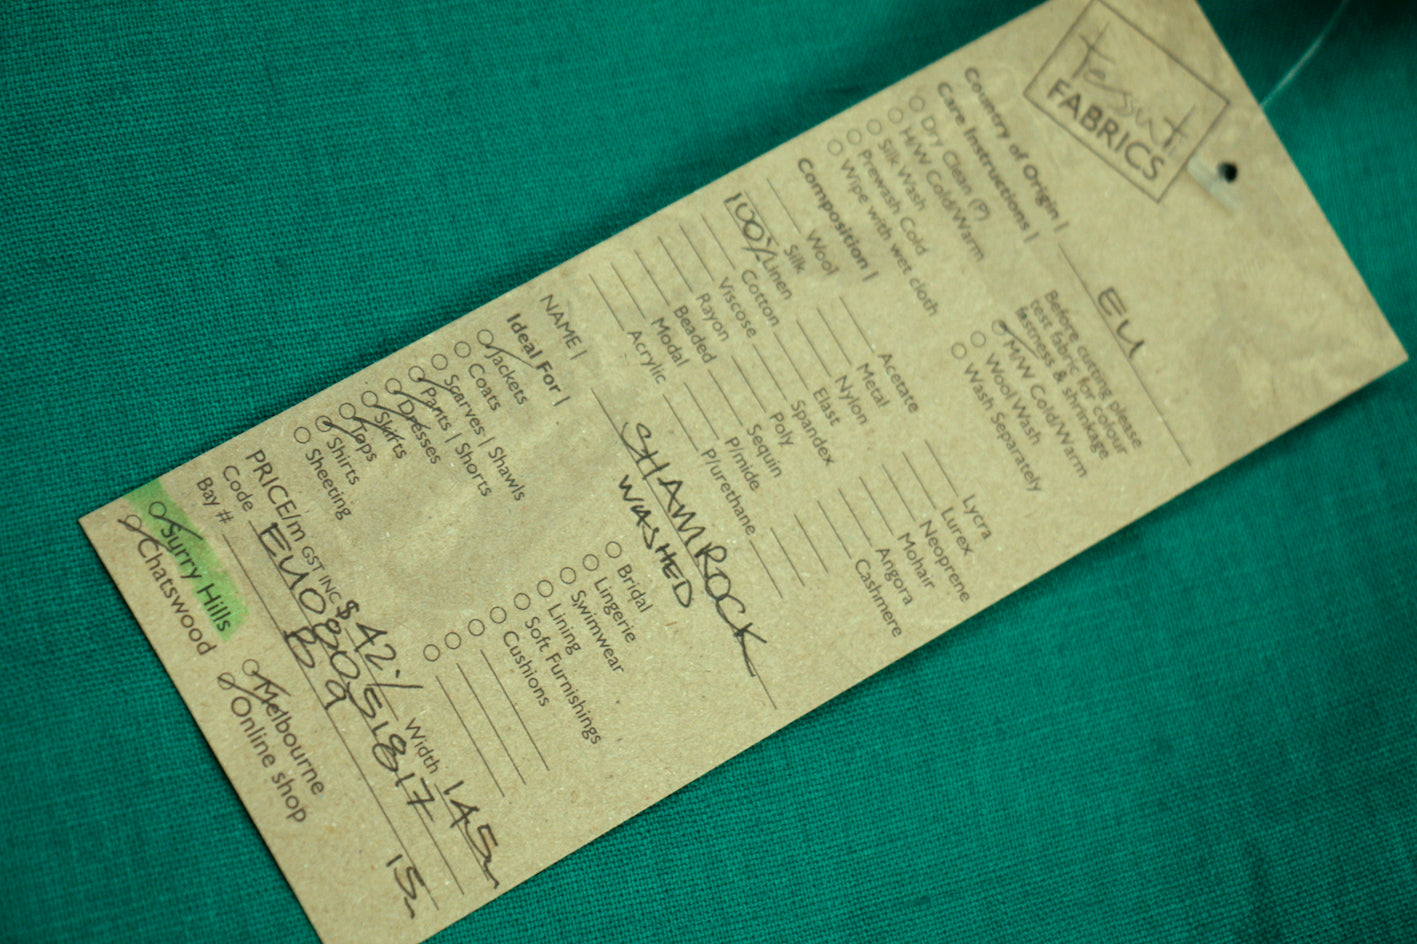 tessuti
FABRICS
Country of Origin | EU
Care Instructions |
Before cutting please
test fabric for colour
fastness & shrinkage
Dry Clean (P)
H/W Cold/Warm
Silk Wash
Prewash Cold
Wipe with wet cloth
M/W Cold/Warm
Wool Wash
Wash Separately
Composition |
Wool
Silk
100% Linen
Cotton
Viscose
Rayon
Beaded
Modal
Acrylic
Acetate
Metal
Nylon
Elast
Spandex
Poly
Sequin
P/mide
P/urethane
Lycra
Lurex
Neoprene
Mohair
Angora
Cashmere
NAME | SHAMROCK
WASHED
Ideal For |
Jackets
Coats
Scarves | Shawls
Pants | Shorts
Dresses
Skirts
Tops
Shirts
Sheeting
Bridal
Lingerie
Swimwear
Lining
Soft Furnishings
Cushions
PRICE/m GST INC $42./ Width 145m
Code EU08051817
Bay # B9 15m
Surry Hills Melbourne
Chatswood Online shop